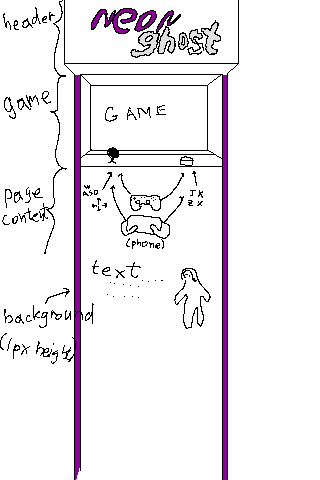 header
neon
ghost
game
GAME
page
content
W
ASD
JK
ZX
(phone)
text
background
(1px height)